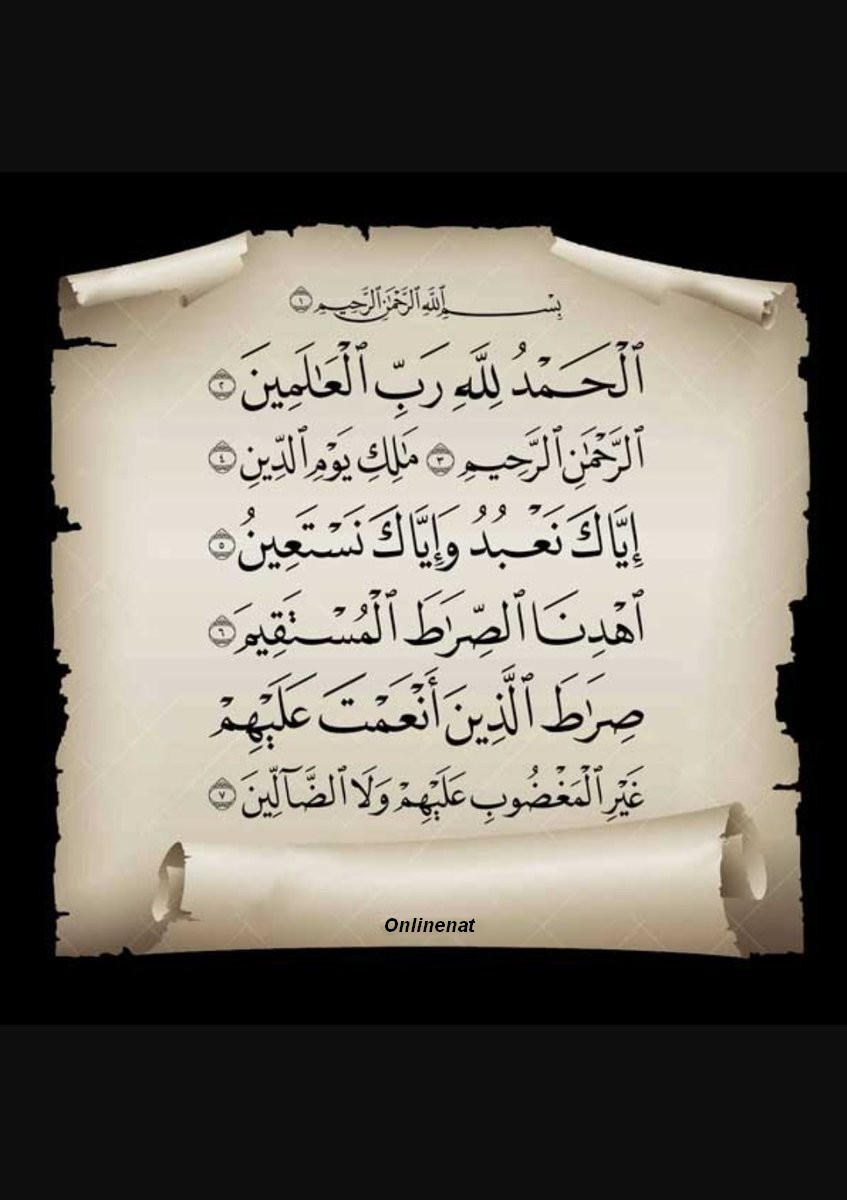 بِسْمِ ٱللَّهِ ٱلرَّحْمَٰنِ ٱلرَّحِيمِ ١
ٱلْحَمْدُ لِلَّهِ رَبِّ ٱلْعَٰلَمِينَ ٢
ٱلرَّحْمَٰنِ ٱلرَّحِيمِ ٣ مَٰلِكِ يَوْمِ ٱلدِّينِ ٤
إِيَّاكَ نَعْبُدُ وَإِيَّاكَ نَسْتَعِينُ ٥
ٱهْدِنَا ٱلصِّرَٰطَ ٱلْمُسْتَقِيمَ ٦
صِرَٰطَ ٱلَّذِينَ أَنْعَمْتَ عَلَيْهِمْ
غَيْرِ ٱلْمَغْضُوبِ عَلَيْهِمْ وَلَا ٱلضَّآلِّينَ ٧
Onlinenat